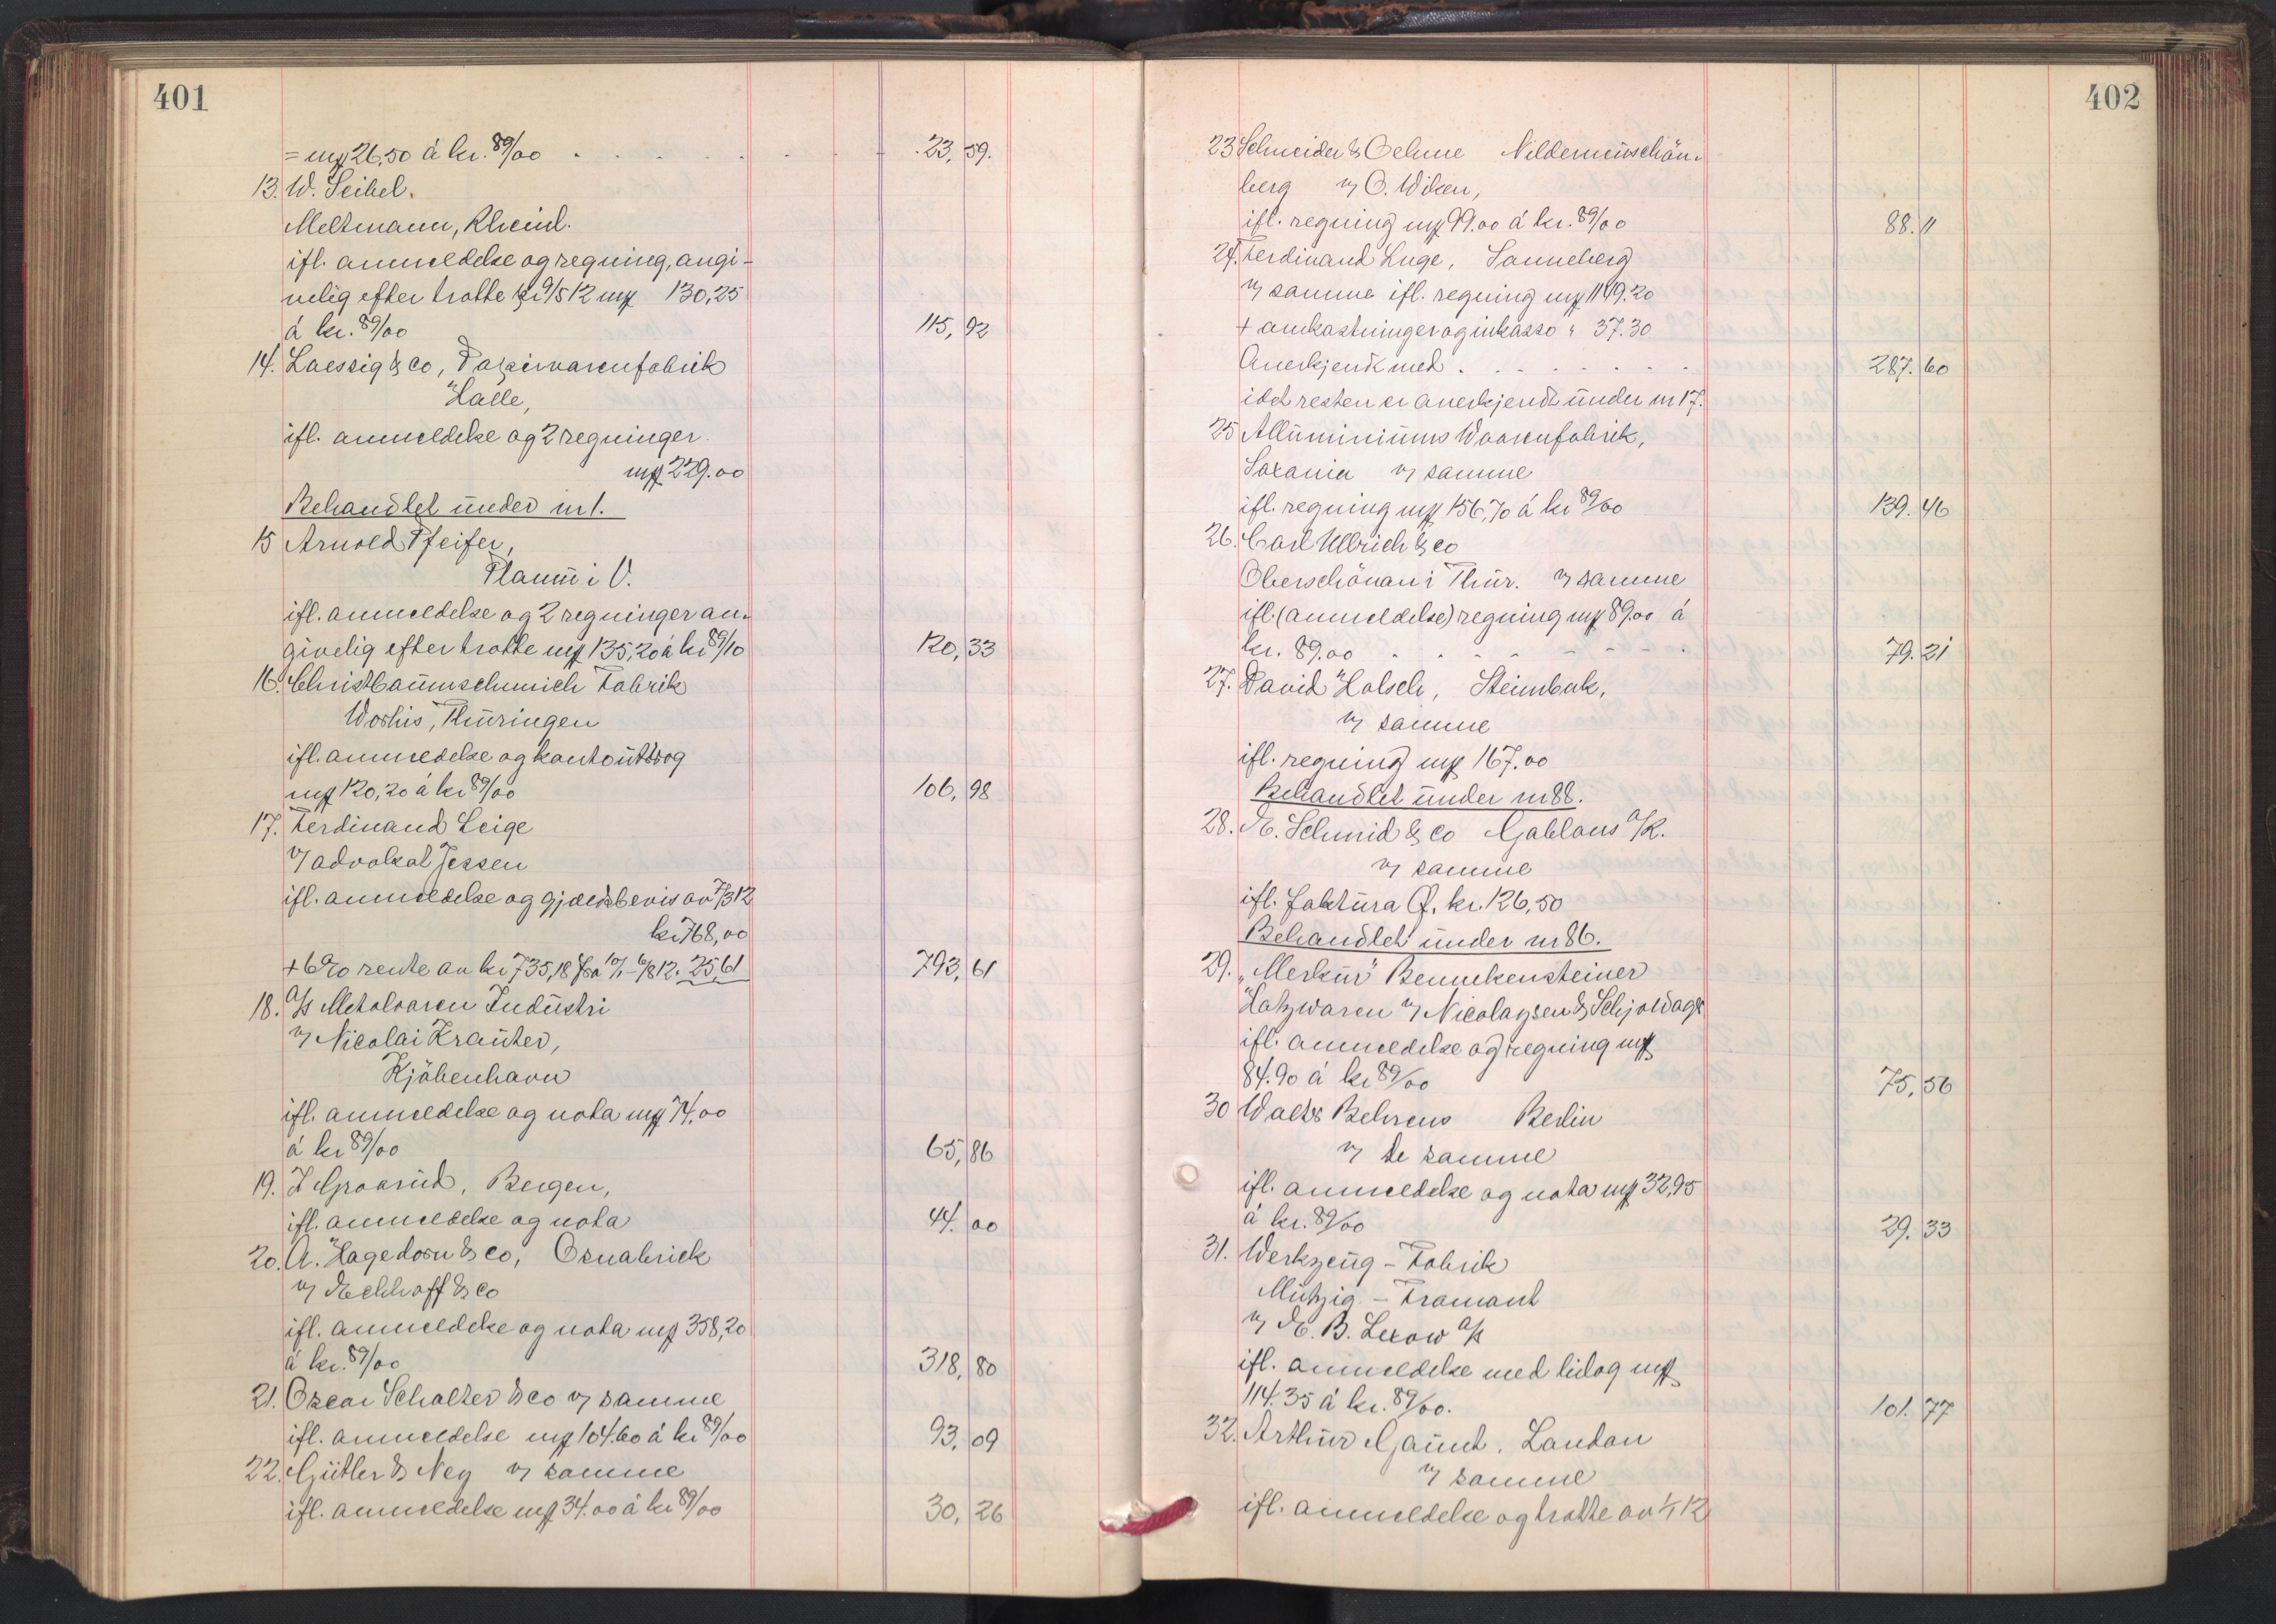 401
= mk 26,50 á kr. 89/00 . . . . . . . 23,59.
13. W. Seibel.
Metmann, Rheinl.
ifl. anmeldelse og regning, angi-
velig efter tratte pr 9/5 12 mk 130,25
á kr. 89/00 115,92
14. Laessig & Co, Papirvarenfabrik
Halle,
ifl. anmeldelse og 2 regninger
mk 229.00
Behandlet under nr 1.
15 Arnold Pfeifer,
Plauen i V.
ifl. anmeldelse og 2 regninger an-
givelig efter tratte mk 135,20 á kr 89/10 120,33
16. Christbaumschmich Fabrik
Worbis, Thüringen
ifl. anmeldelse og kontoutdrog
mk 120,20 á kr 89/00 106,98
17. Ferdinand Leige
v/ advokat Jessen
ifl. anmeldelse og gjældsbevis av 7/3 12
kr 768,00
+ 6% rente av kr 735,18 fra 10/1 - 6/8 12. 25,61 793,61
18. A/s Metalvaren Industri
v/ Nicolai Krauter,
Kjöbenhavn
ifl. anmeldelse og nota mk 74,00
á kr 89/00 65,86
19. I Graarud, Bergen,
ifl. anmeldelse og nota 44.00
20. A. Hagedorn & Co, Osnabrick
v/ Eckhoff & Co
ifl. anmeldelse og nota mk 358,20
á kr. 89/00 318,80
21. Oscar Schalter & Co v/ samme
ifl. anmeldelse mk 104.60 á kr 89/00 93,09
22. Gütler & Ney v/ samme
ifl. anmeldelse mk 34.00 á kr 89/00 30,26
402
23 Schneider & Oehme Nildermeuschön-
berg v/ O. Wiken,
ifl. regning mk 99.00 á kr. 89/00 88.11
24. Ferdinand Luge, Sonneberg
v/ samme ifl. regning mk 1149.20
+ omkastninger og inkasso " 37.30
Anerkjendt med . . . . . . . 287.60
idet resten er anerkjendt under nr 17.
25 Alluminiums Waarenfabrik,
Saxania v/ samme
ifl. regning mk 156,70 á kr 89/00 139.46
26. Carl Ullrich & Co
Oberschönau i Thür. v/ samme
ifl. (anmeldelse) regning mk 89.00 á
kr. 89.00 . . . . . . . 79.21
27. David Holsch, Steinbak,
v/ samme
ifl. regning mk 167.00
Behandlet under nr 88.
28. E. Schmid & Co Gablaus A/K.
v/ samme
ifl. faktura Ø. kr. 126,50
Behandlet under nr 86.
29. "Merkur" Bennekensteiner
Holzwaren v/ Nicolaysen & Schjoldager
ifl. anmeldelse og regning mk
84.90 á kr 89/00 75,56
30 Walter Behrens Berlin
v/ de samme
ifl. anmeldelse og nota mk 32,95
á kr. 89/00 29.33
31. Werkzeug - Fabrik
Mutzig - Framant
v/ E. B. Lexow A/s
ifl. anmeldelse med bilag mk
114.35 á kr. 89/00. 101.77
32. Arthur Gaunt. London
v/ samme
ifl. anmeldelse og tratte av 4/1 12